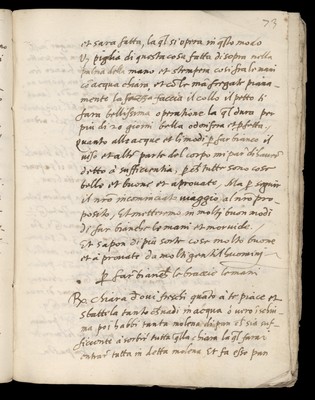 73
et sara fatta, la ql si opera in qsto moco
Vz piglia di questa cosa fatta di sopra nella
palma della mano et stempera cosi fra le mani
cō acqua chiara, et cō le mā fregate piana
mente la faccia il collo il petto ti
fara bellissima operatione la ql dura per
piu di 20 giorni bella odorifera et pfetta,
quanto alle acque et li modi p far bianco il
uiso et altre parte del corpo mi par di hauer
ditto à sufficientia, p che tutte sono cose
belle et buone et aprouate, Ma p seguir
il nr̄o incominciato uiaggio, al nr̄o pro
posito, Et metteremo in molti buoni modi
di far bianche le mani et moruide.
Et sapon di più sorte cose molto buone
et à prouate da molti gentil huomini
p far bianche le braccie le mani
Rx chiara d'oui freschi quāto à te piace et
sbattela tanto che uadi in acqua ò uero in schiu
ma poi habbi tanta molena di pan che sia suf
ficiente à sorbir tutta qlla chiara la ql farai
entrar tutta in detta molena et fa esto pan